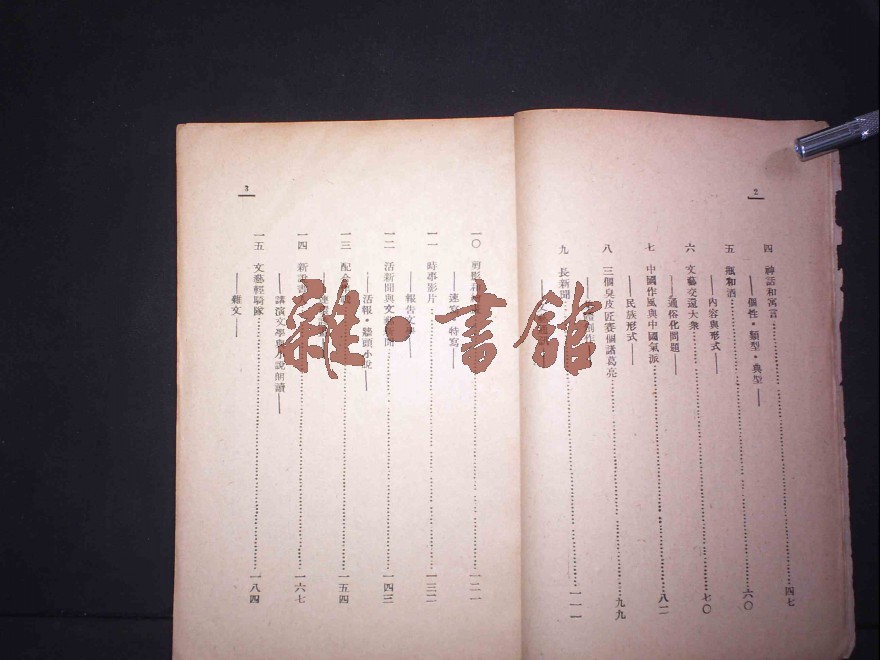 2
四 神話和寓言……四七
——個性・類型・典型——
五 瓶和酒……六〇
——內容與形式——
六 文藝交還大衆……七〇
——通俗化問題——
七 中國作風與中國氣派……八二
——民族形式——
八 三個臭皮匠賽個諸葛亮……九九
九 長新聞……一一一
3
一〇 剪影和……一二一
——速寫・特寫——
一一 時事影片……一三二
——報告文學——
一二 活新聞與文藝新聞……一四三
——活報・牆頭小說——
一三 配……一五四
一四 新說書……一六七
——講演文學與小說朗讀——
一五 文藝輕騎隊……一八四
——雜文——
雜・書館